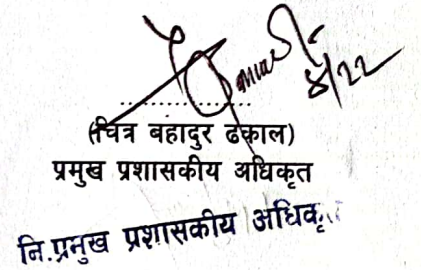 ४/२२
(चित्र बहादुर ढकाल)
प्रमुख प्रशासकीय अधिकृत
नि.प्रमुख प्रशासकीय अधिकृत